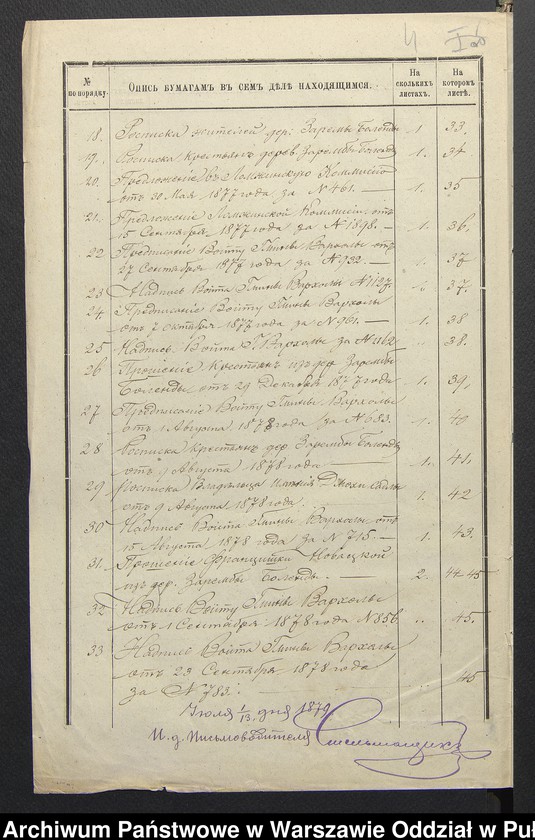 4
№ по порядку.
Опись бумагамъ въ семъ дѣлѣ находящимся.
На сколькихъ листахъ.
На которомъ листѣ.
18. Росписка жителей дер: Заремы Боленды 1 33.
19. Росписка крестьянъ дерев. Зарембы Боленды 1. 34
20. Предложеніе въ Ломжинскую Коммисію
отъ 30 Мая 1877 года за № 461. — 1. 35
21. Предложеніе Ломжинской Коммисіи отъ
15 Сентября 1877 года за № 1898. — 1. 36.
22 Предписаніе Войту Гмины Вархолы отъ
27 Сентября 1877 года за № 932. — 37
23 Надпись Войта Гмины Вархолы № 1127. 37.
24 Предписаніе Войту Гмины Вархолы
отъ 7 Октября 1877 года, за № 961. — 1. 38
25 Надпись Войта Г. Вархолы за № 1162 38.
26 Прошеніе Крестьянъ изъ дер Зарембы
Боленды отъ 29 Декабря 1877 года 1. 39,
27 Предписаніе Войту Гмины Вархолы
отъ 1 Августа 1878 года за № 683. 1. 40
28 Росписка Крестьянъ дер. Зарембы Боленды
отъ 9 Августа 1878 года 1. 41.
29 Росписка Владѣльца имѣнія
отъ 9 Августа 1878 года. 1. 42
30 Надпись Войта Гмины Вархолы отъ
15 Августа 1878 года за № 715. — 1. 43.
31. Прошеніе Францишки Новацкой
изъ дер. Зарембы Боленды. — 2. 44-45
32 Надпись Войту Гмины Вархолы
отъ 1 Сентября 1878 года № 856 .. 45.
33 Надпись Войта Гмины Вархолы
отъ 23 Сентября 1878 года
за № 783. — .. 45
Іюля 1/13 дня 1879
И. д. Письмоводителя
Archiwum Państwowe w Warszawie Oddział w Puł